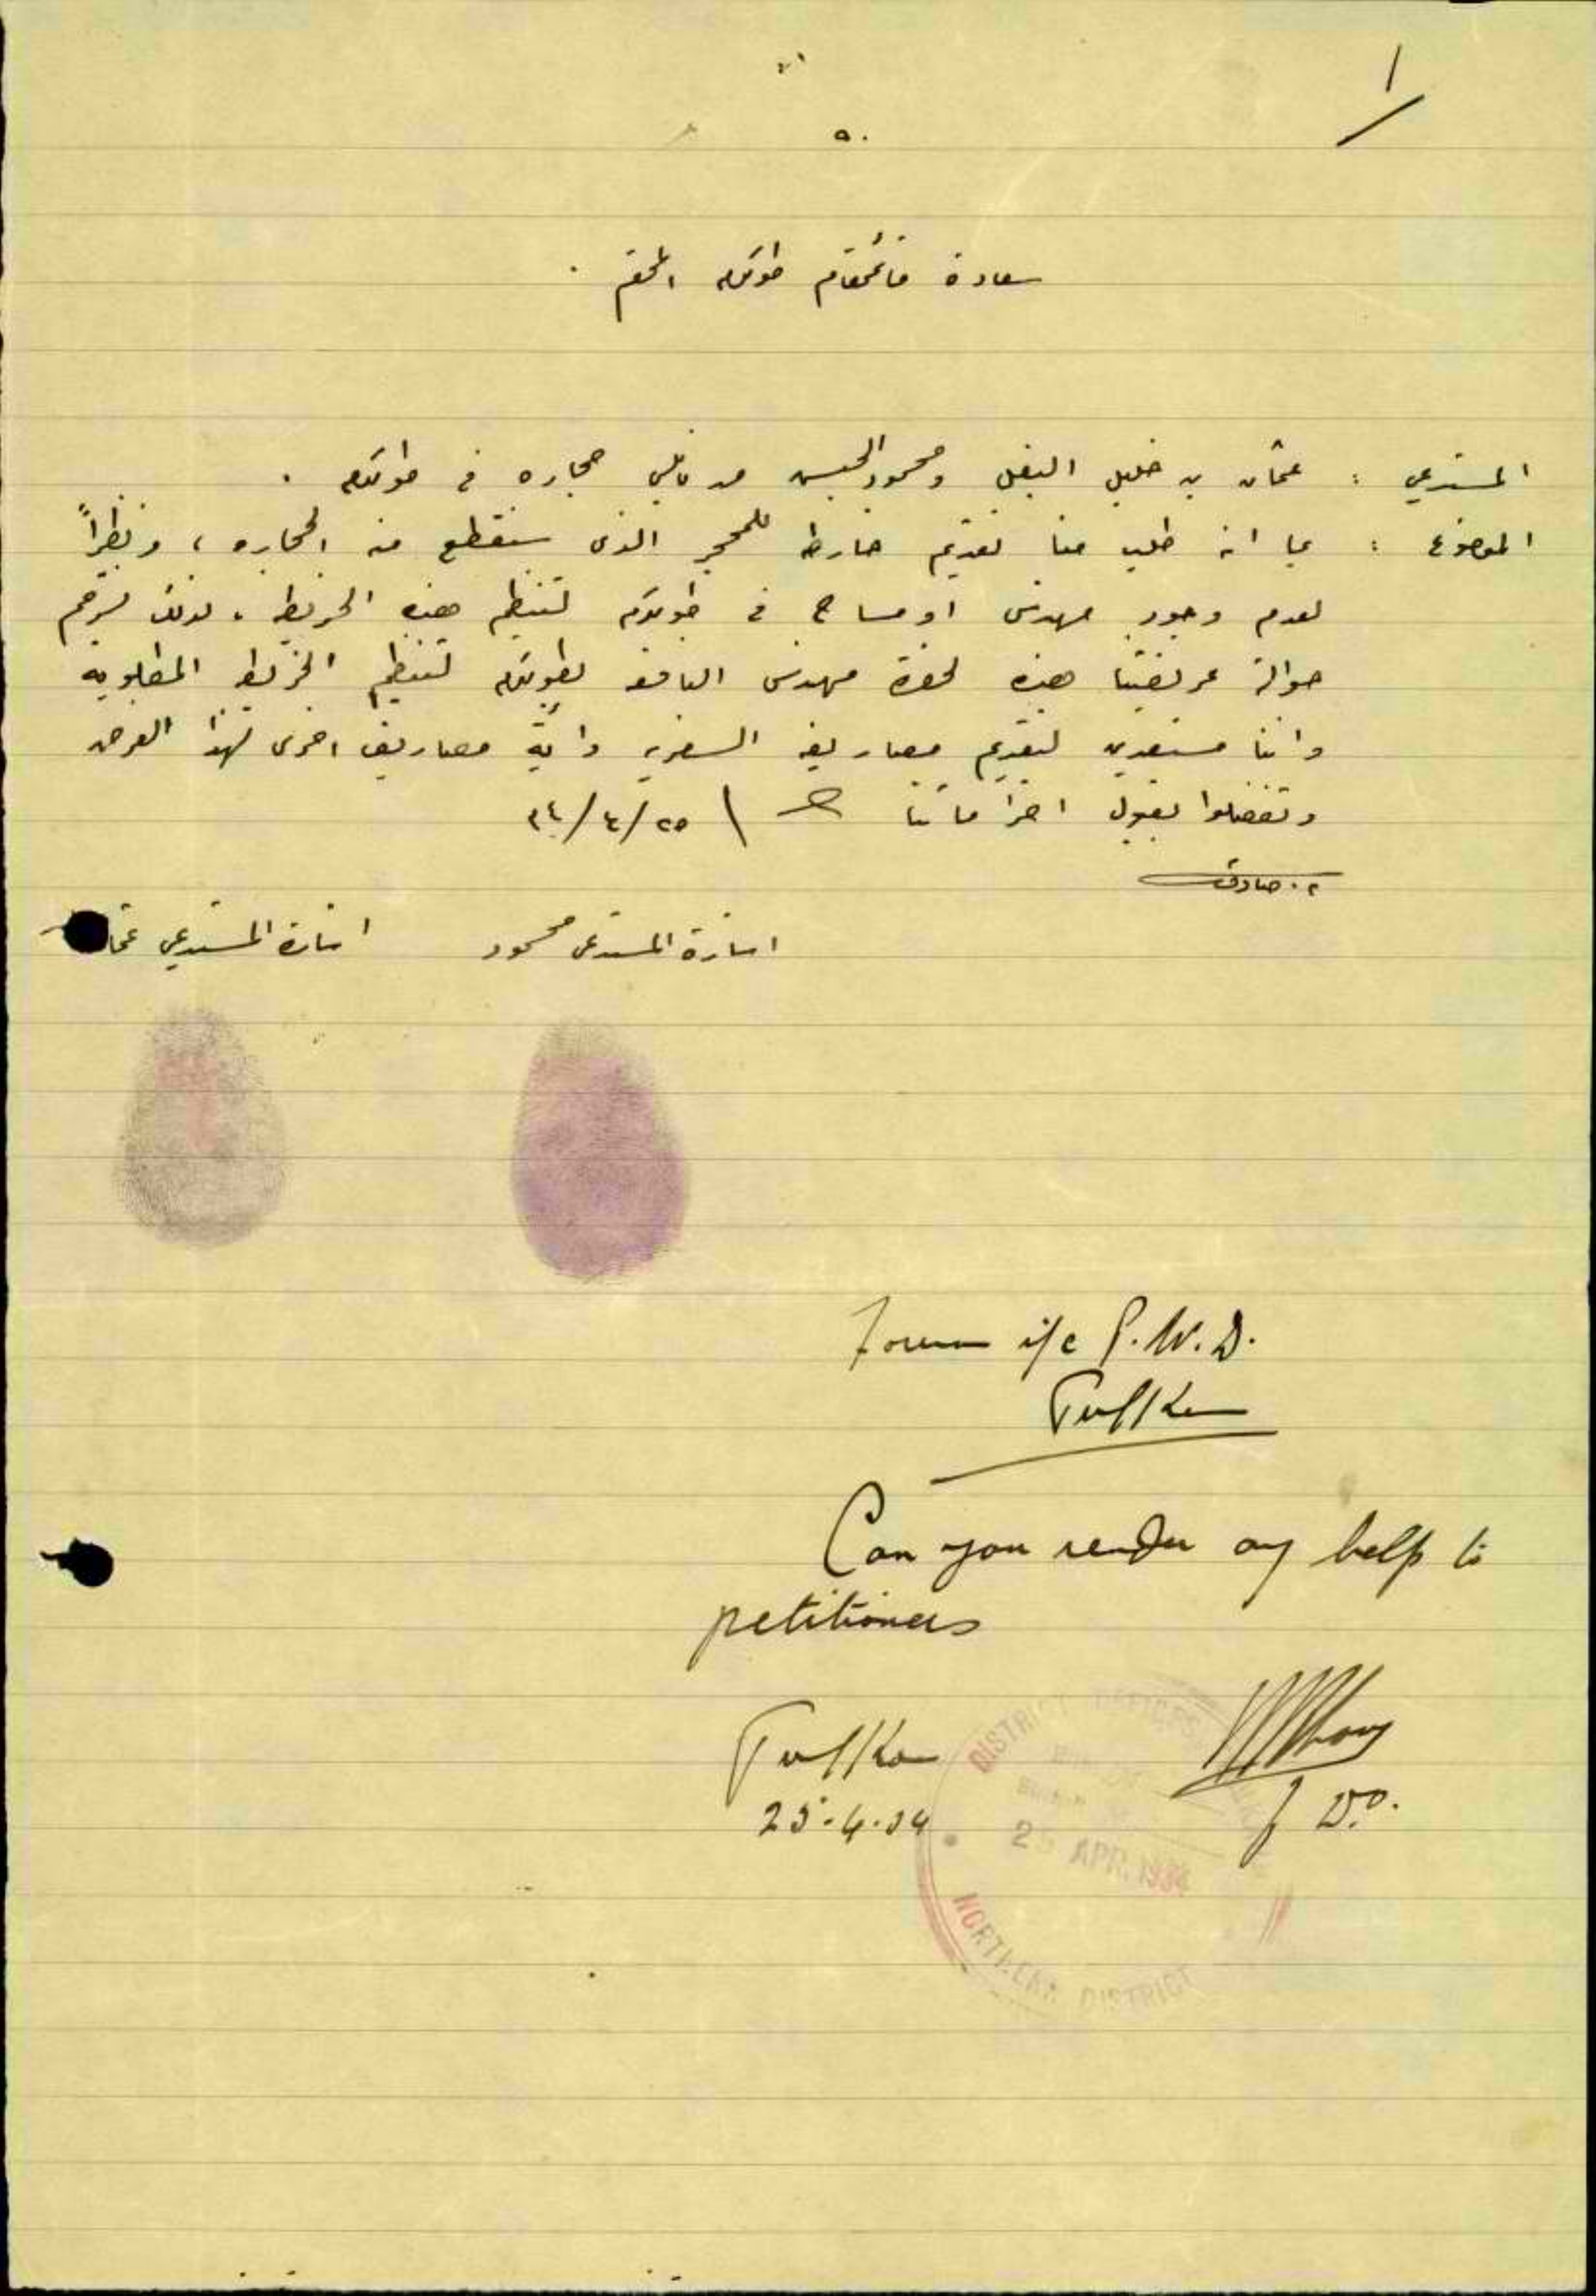 ١
٥٠
سعادة قائمقام طولكرم المحترم .
المستدعي : عثمان بن خليل البغل ومحمود الحبس من قالعي حجاره في طولكرم .
الموضوع : بما انه طلب منا تقديم خارطه للمحجر الذي سنقطع منه الحجاره ، ونظراً
لعدم وجود مهندس او مساح في طولكرم لتنظيم هذه الخريطه ، لذلك نسترحم
حوالة عريضتنا هذه لحضرة مهندس النافعه بطولكرم لتنظيم الخريطه المطلوبه
واننا مستعدين لتقديم مصاريفه السفريه وأية مصاريف اخرى لهذا الغرض
وتفضلوا بقبول احتراماتنا ٢٥/٤/٣٤
م. صادق
اشارة المستدعي محمود
اشارة المستدعي عثمان
Foreman i/c P.W.D.
Tulkarm
Can you render any help to
petitioners
Tulkarm
25.4.34
f D.O.
DISTRICT OFFICES
25 APR. 1934
NORTHERN DISTRICT